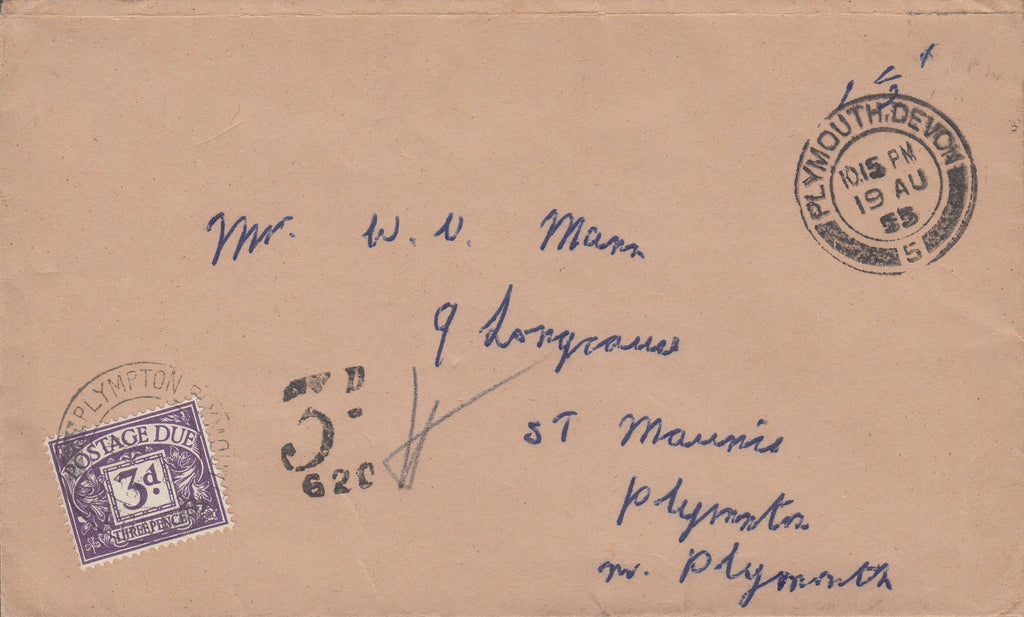 PLYMOUTH, DEVON
10.15 PM
19 AU
55
5
Mr. W. V. Mann
9 Longcause
ST Maurice
Plympton
nr. Plymouth
PLYMPTON PLYMOU
POSTAGE DUE
3d.
THREE PENCE
3D.
62C